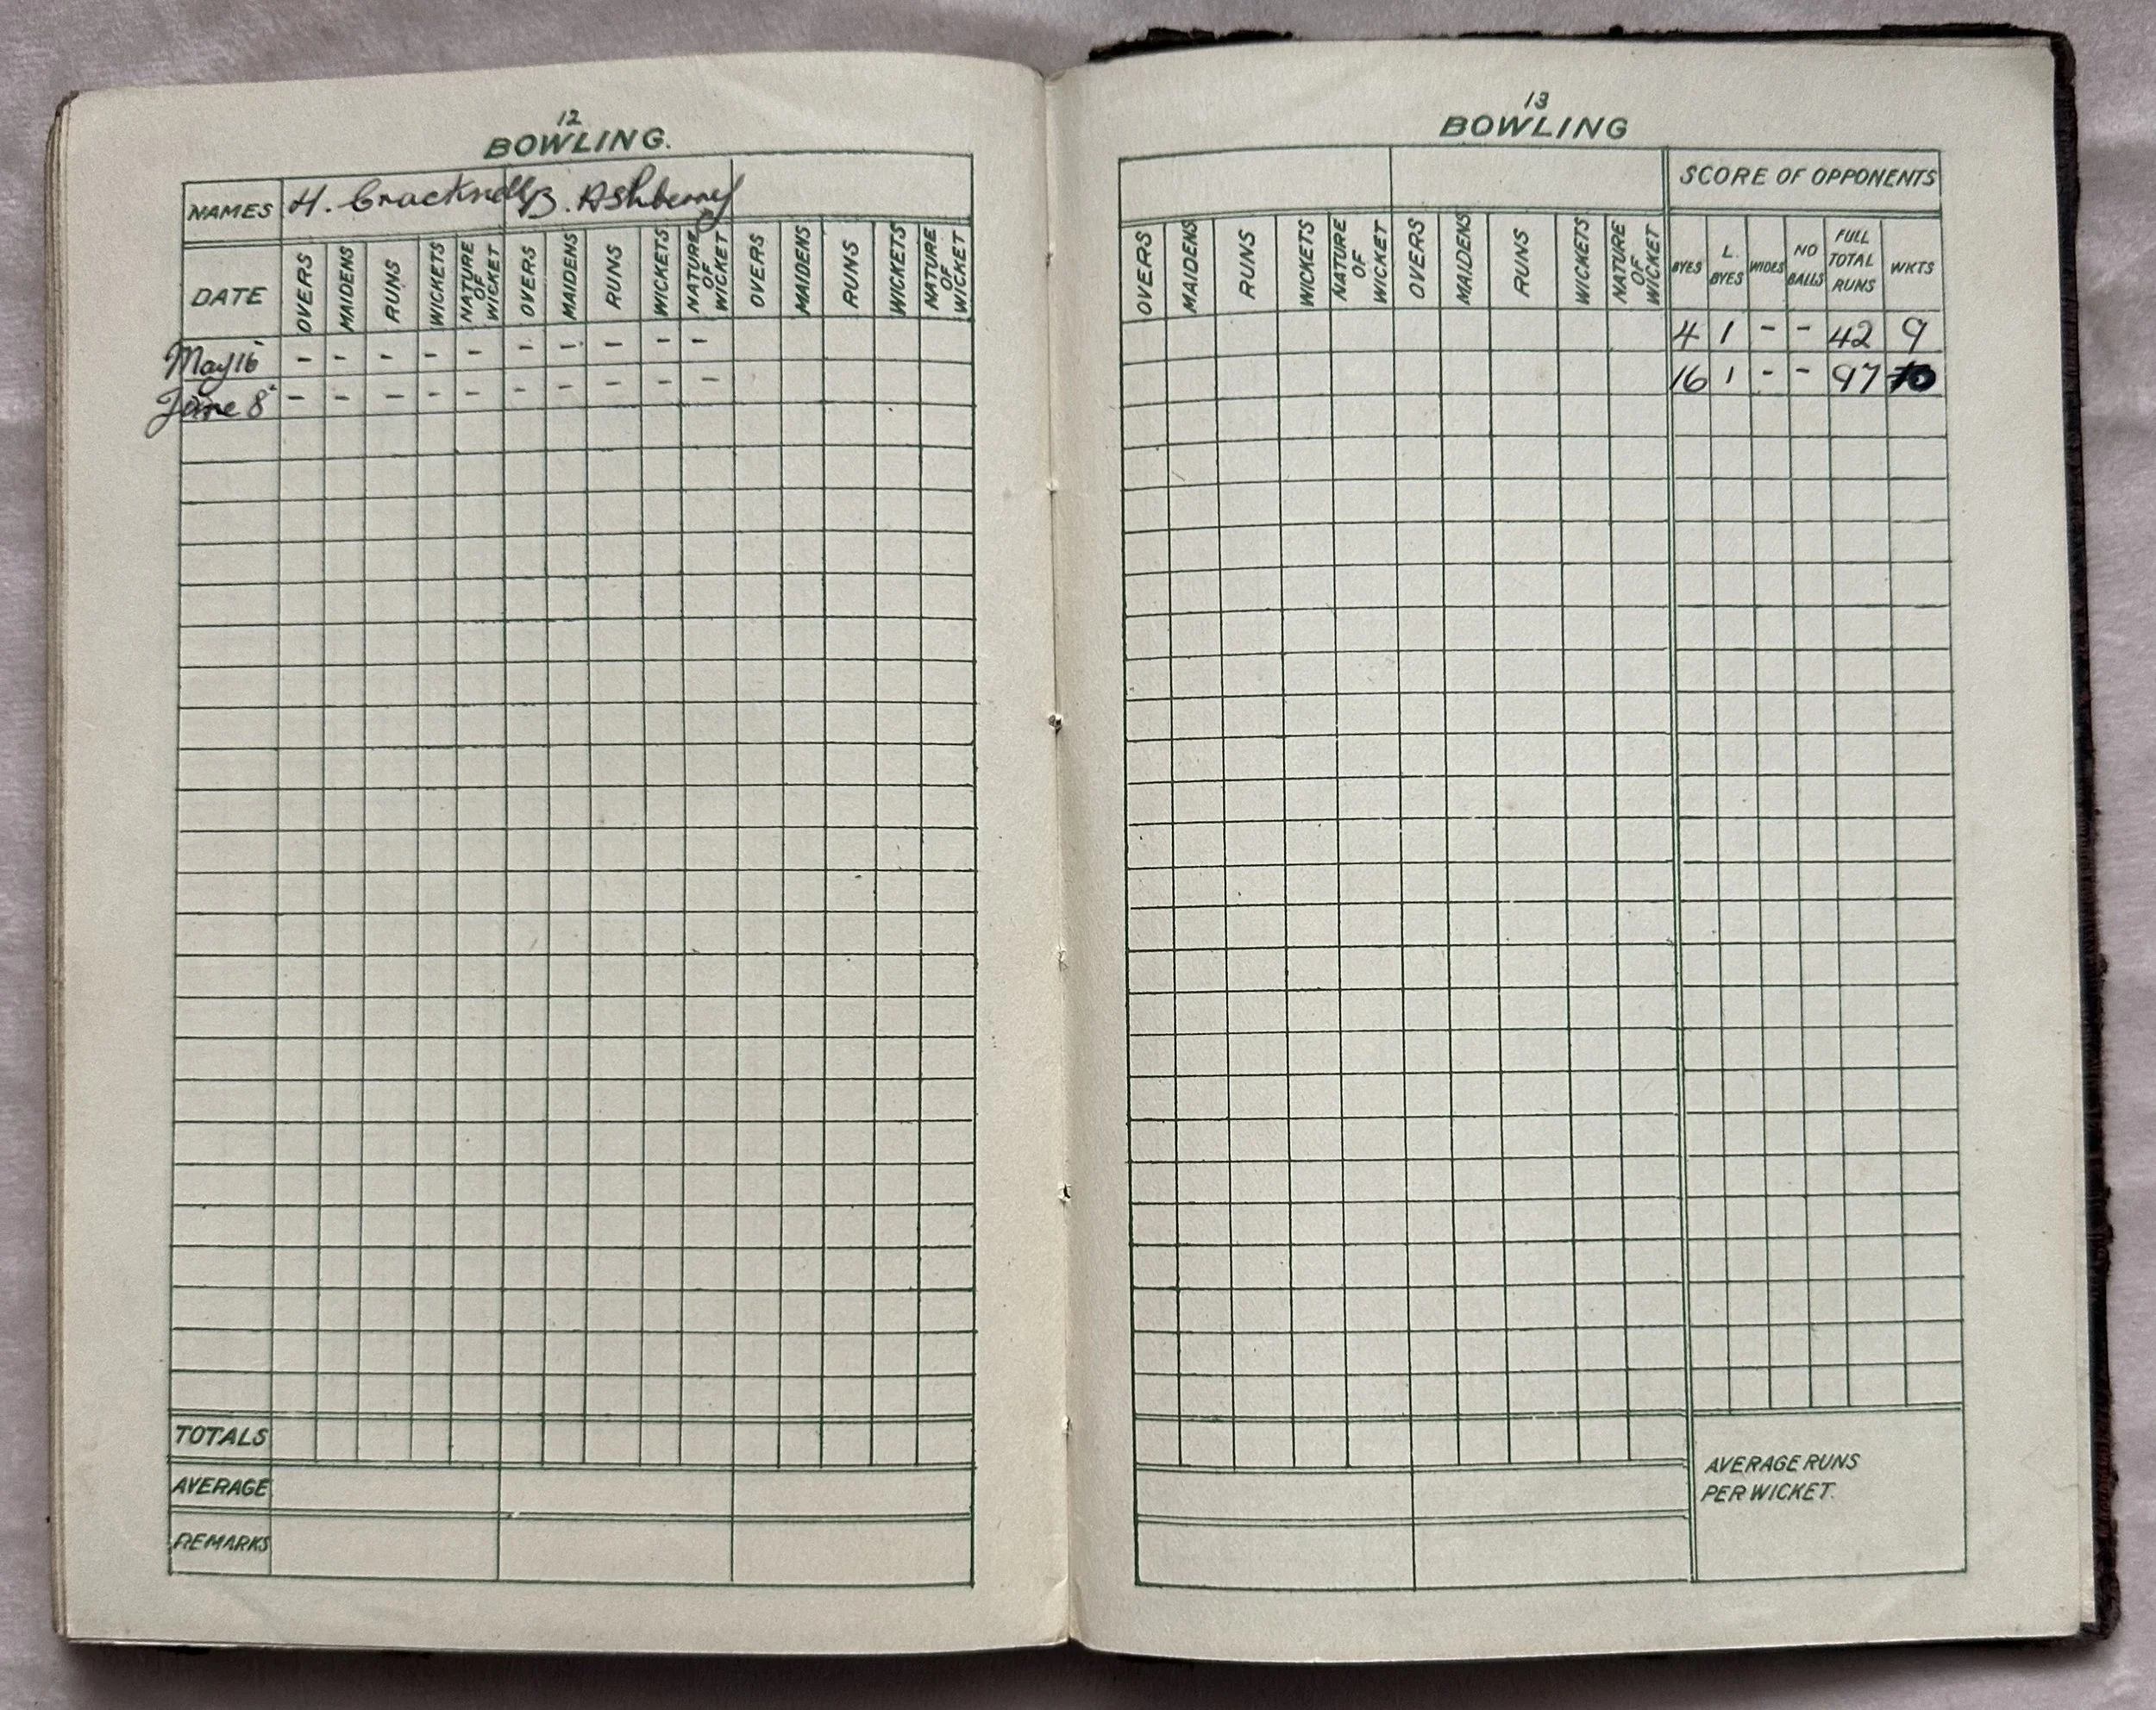 12
BOWLING.
NAMES H. Cracknell B. Ashberry
DATE OVERS MAIDENS RUNS WICKETS NATURE OF WICKET OVERS MAIDENS RUNS WICKETS NATURE OF WICKET OVERS MAIDENS RUNS WICKETS NATURE OF WICKET
May 16 - - - - - - - - - -
June 8 - - - - - - - - - -
TOTALS
AVERAGE
REMARKS
13
BOWLING
SCORE OF OPPONENTS
OVERS MAIDENS RUNS WICKETS NATURE OF WICKET OVERS MAIDENS RUNS WICKETS NATURE OF WICKET BYES L. BYES WIDES NO BALLS FULL TOTAL RUNS WKTS
4 1 - - 42 9
16 1 - - 97 10
AVERAGE RUNS
PER WICKET.